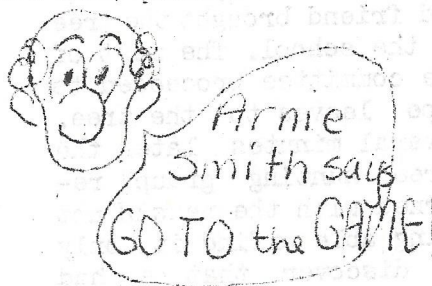 Arnie
Smith says
GO TO the GAME!